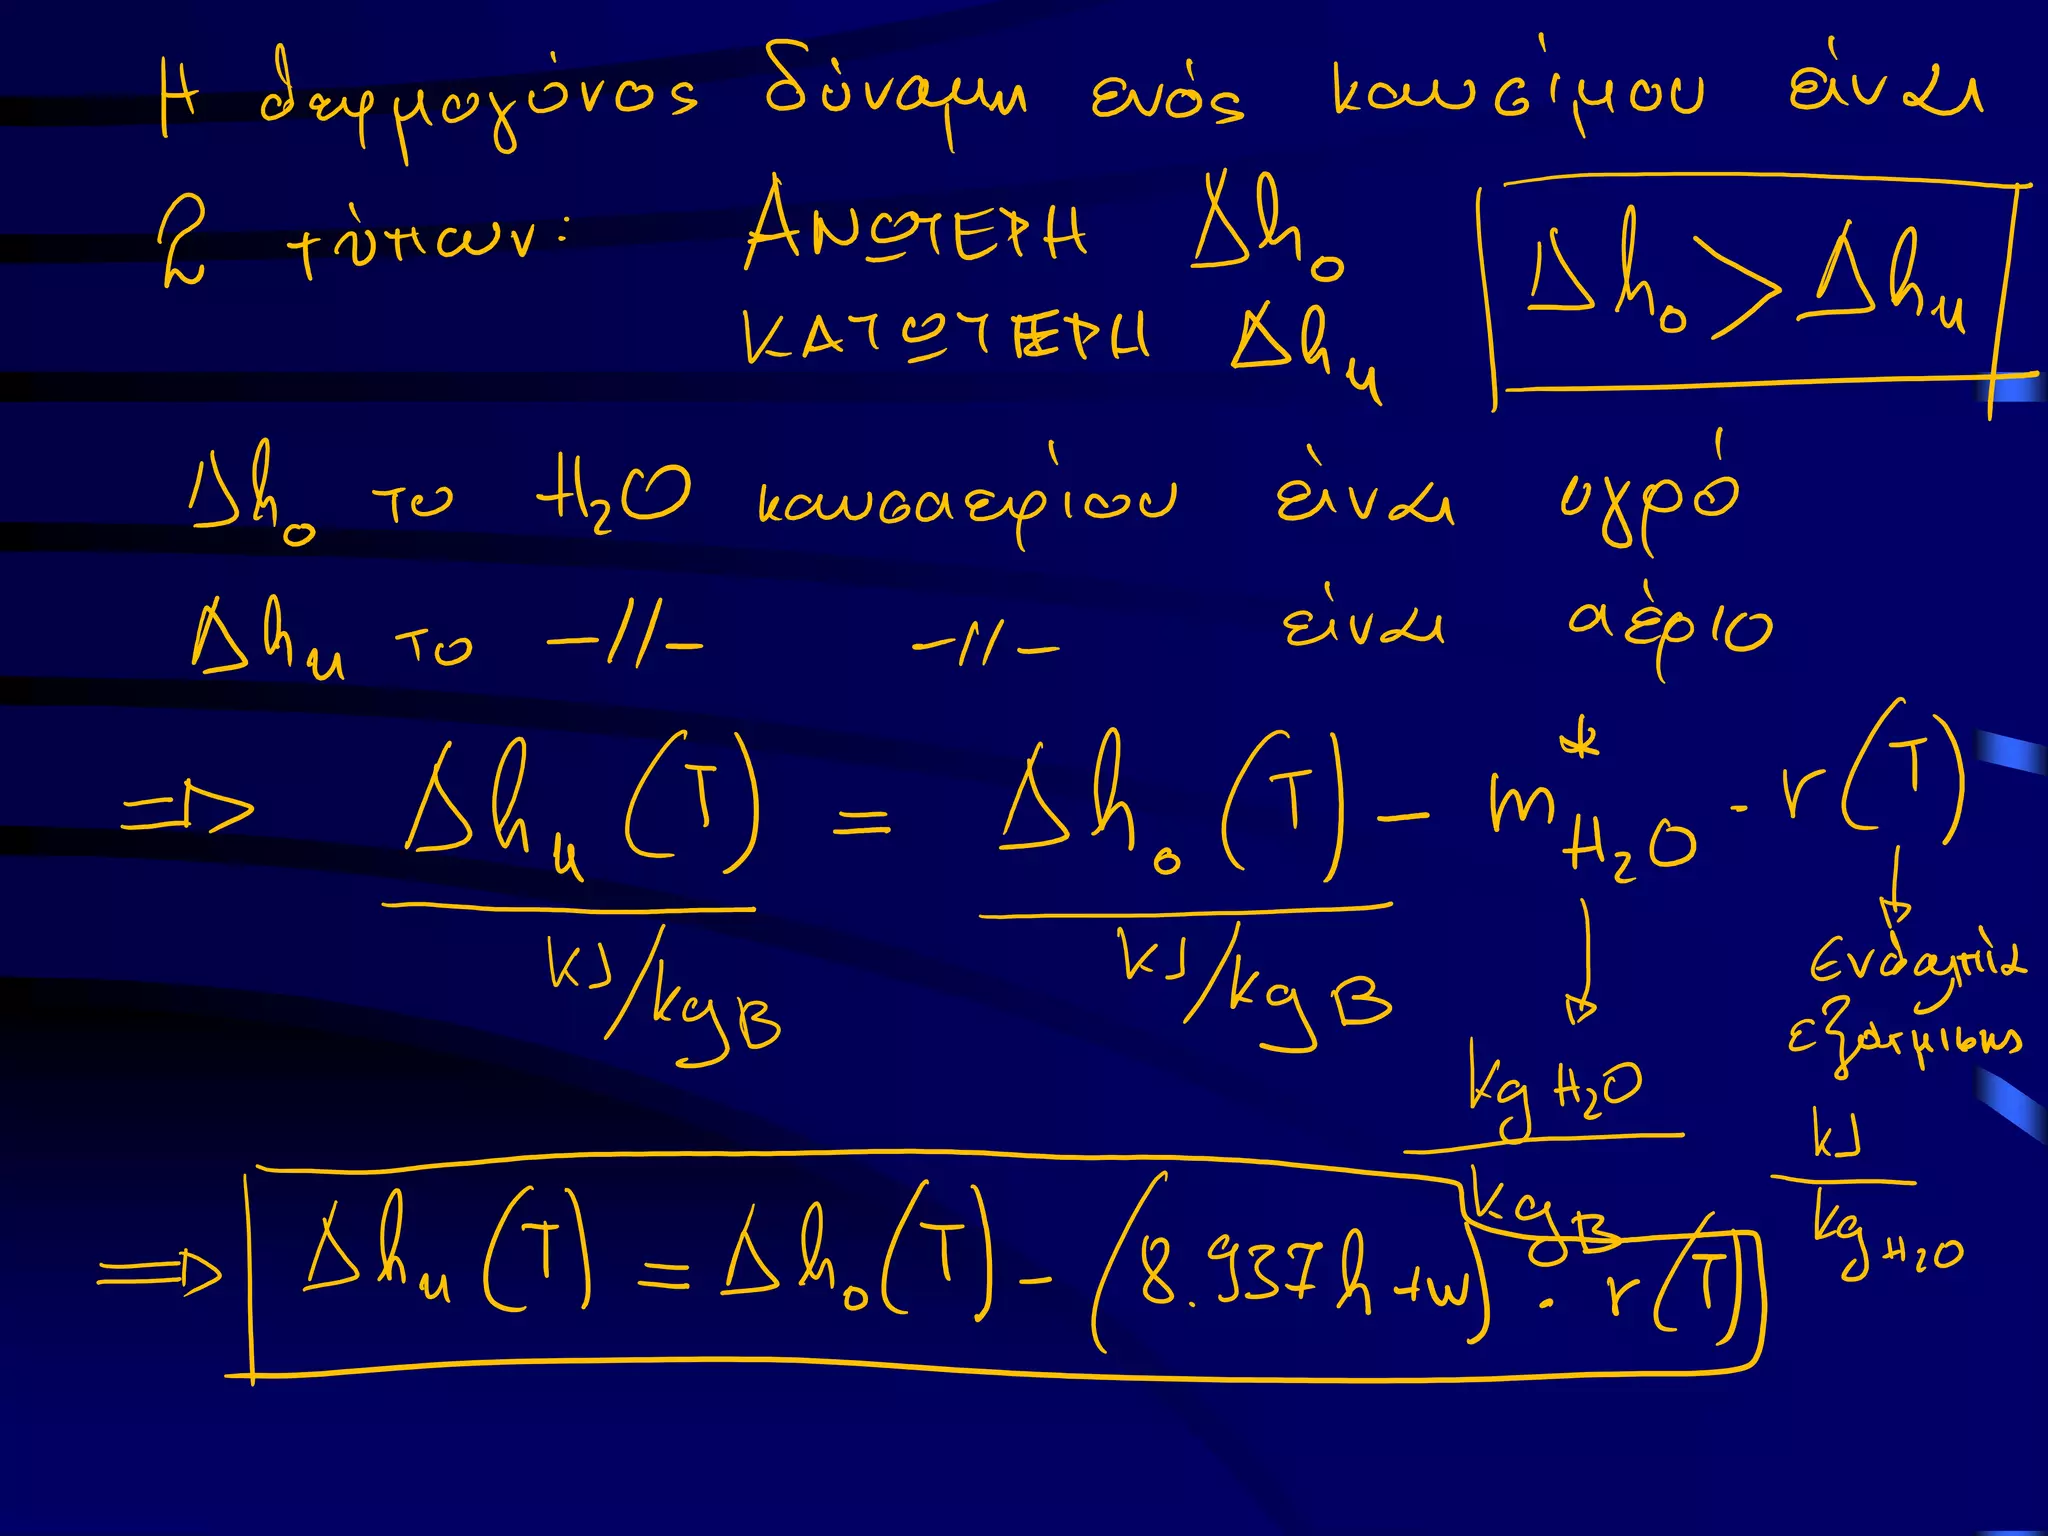 Η θερμογόνος δύναμη ενός καυσίμου είναι
2 τύπων: ΑΝΩΤΕΡΗ Δh₀
ΚΑΤΩΤΕΡΗ Δhᵤ
Δh₀ > Δhᵤ
Δh₀ το H₂O καυσαερίου είναι υγρό
Δhᵤ το -//- -//- είναι αέριο
⇒ Δhᵤ(T) = Δh₀(T) - m*H₂O · r(T)
kJ/kgB kJ/kgB
kg H₂O / kgB
ενθαλπία
εξάτμισης
kJ / kg H₂O
⇒ Δhᵤ(T) = Δh₀(T) - (8.937h+w) · r(T)